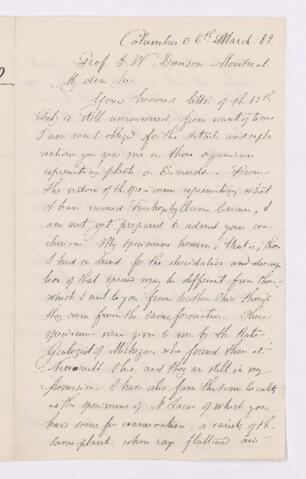 Columbus O 6th March 89.
Prof J. W Dawson Montreal.
My dear Sir.
Your honored letter of the 17th
Feby is still unanswered from want of time.
I am much obliged for the details and expla
nations you give me on those organisms
representing plants in E. From
the nature of the specimen representing what
I have named Trichophyllum, I
am not yet prepared to admit your con
clusion. My specimens however, that is, those
I had on hand for the elucidation and descrip
tion of that species may be different from those
which I sent to you from locality Ohio though
they come from the same formation. These
specimens were given to me by the State
Geologist of Michigan who found them at
Ohio, and they are still in my
possession. I have also from the same locality
as the specimens of R. Lacoe of which you
have some for examination, a variety of the
same plant whose rays flattened and